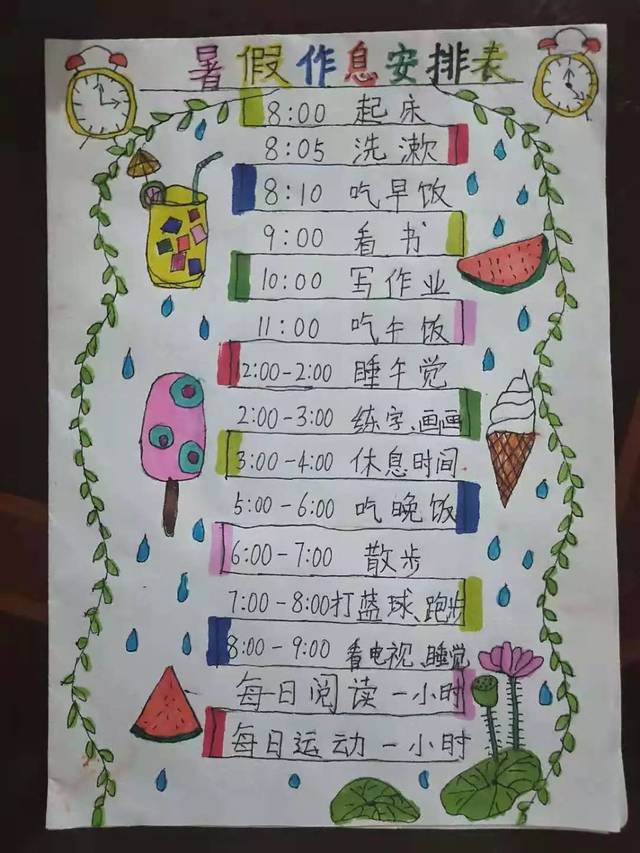 暑假作息安排表
8:00 起床
8:05 洗漱
8:10 吃早饭
9:00 看书
10:00 写作业
11:00 吃午饭
12:00-2:00 睡午觉
2:00-3:00 练字、画画
3:00-4:00 休息时间
5:00-6:00 吃晚饭
6:00-7:00 散步
7:00-8:00 打蓝球、跑步
8:00-9:00 看电视、睡觉
每日阅读一小时
每日运动一小时